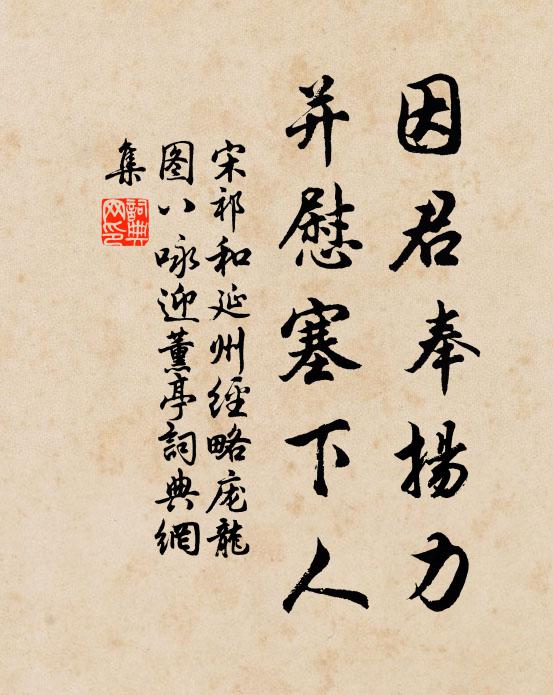 因君奉揚力
并慰塞下人
宋祁和延州經略庞龍
图八咏迎薰亭詞典網
集
詞典
网印